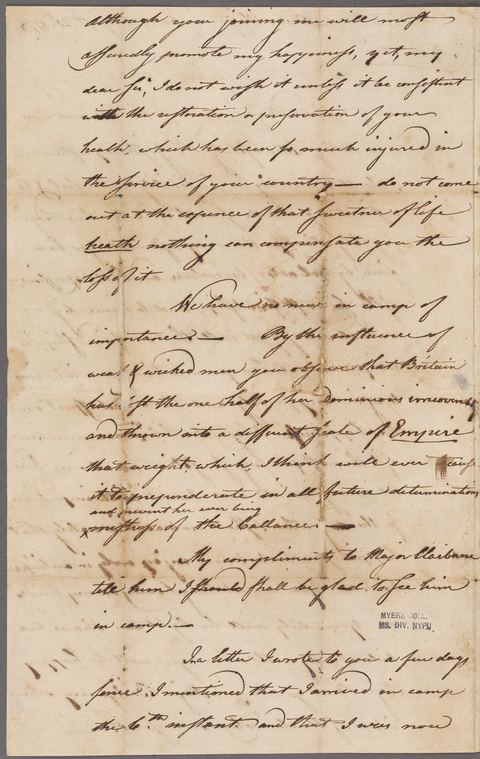 although your joining me will most
assuredly promote my happiness, yet, my
dear Sir, I do not wish it unless it be consistent
with the restoration or preservation of your
health, which has been so much injured in
the service of your country — do not come
out at the expence of that sweetner of life
health nothing can compensate you the
loss of it
We have no news in camp of
importance. — By the influence of
weak & wicked men you observe that Britain
has lost the one half of her Dominions irrecoverably
and thrown into a different scale of Empire
that weight which, I think will ever cause
it to preponderate in all future determinations
and prevent her ever being
mistress of the Ballance. —
My compliments to Major Claibune
tell him I should shall be glad to see him
in camp. —
MYERS COLL.
MS. DIV. NYPL
In a letter I wrote to you a few days
since I mentioned that I arrived in camp
the 6.th instant and that I was now